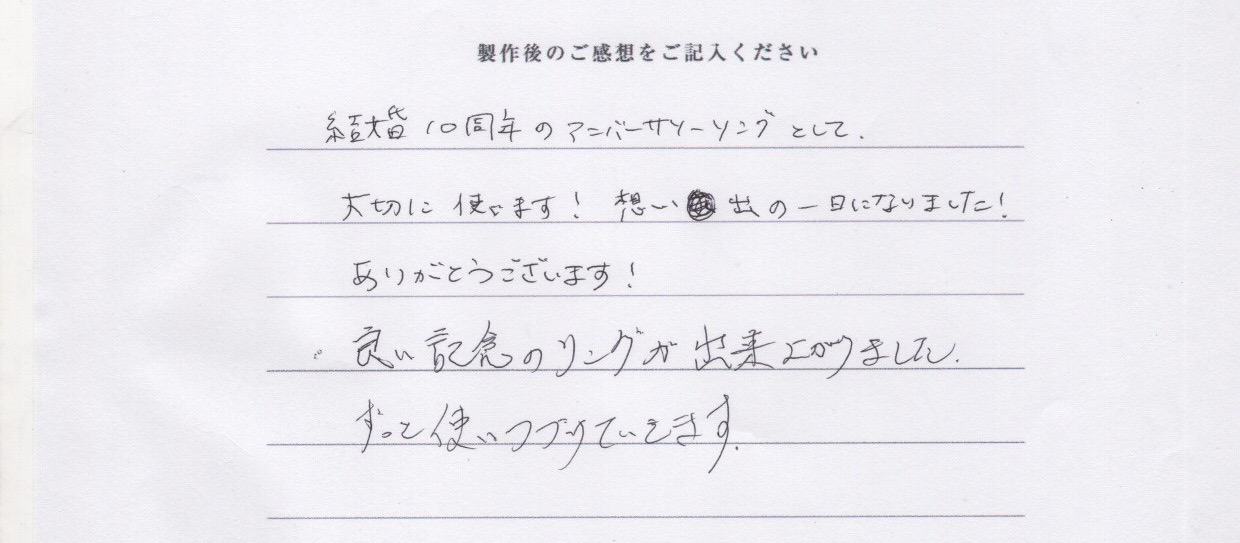 製作後のご感想をご記入ください
結婚10周年のアニバーサリーリングとして、
大切に使います！ 想い出の一日になりました！
ありがとうございます！
良い記念のリングが出来上がりました。
ずっと使いつづけていきます。